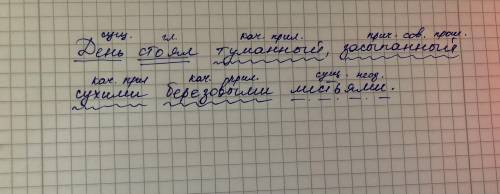 сущ. гл. кач. прил. прич. сов. прош.
День стоял туманный, засыпанный
кач. прил кач. прил. сущ. неод.
сухими березовыми листьями.